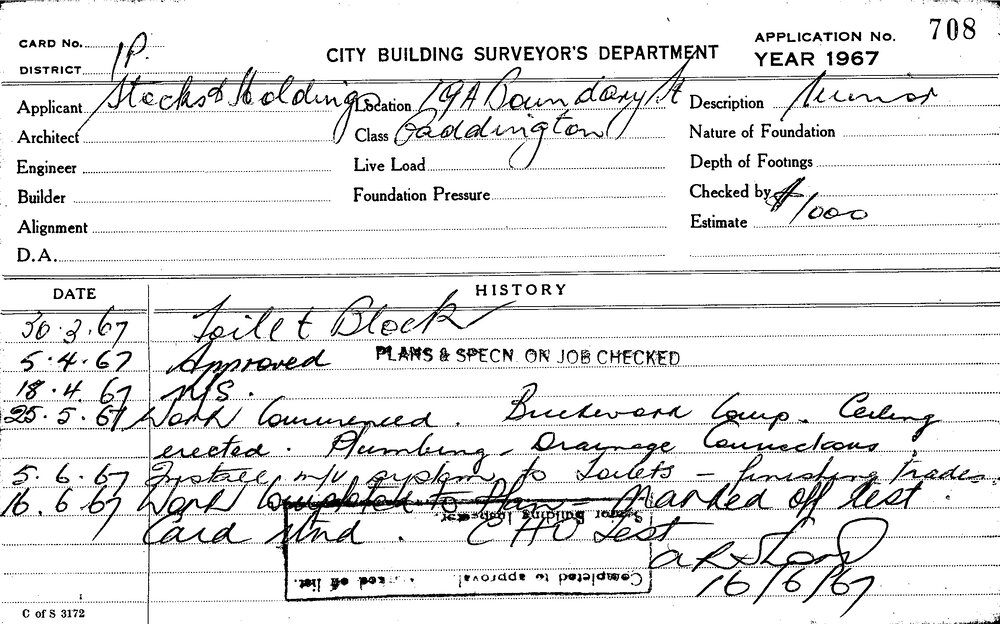 CARD No. 1P.
CITY BUILDING SURVEYOR'S DEPARTMENT
APPLICATION No. 708
DISTRICT
YEAR 1967
Applicant Stocks & Holdings Location 19A Boundary St Description Minor
Architect Class Paddington Nature of Foundation
Engineer Live Load Depth of Footings
Builder Foundation Pressure Checked by
Alignment Estimate $1000
D.A.
DATE HISTORY
30.3.67 Toilet Block
5.4.67 Approved PLANS & SPECN ON JOB CHECKED
18.4.67 N/S.
25.5.67 Work Commenced. Brickwork Comp. Ceiling
erected. Plumbing - Drainage Connections
5.6.67 Install m/v system to Toilets - finishing trades.
16.6.67 Work Completed to Plan - Marked off list.
Card
Senior Building Inspector.
Completed to approval marked off list.
16/6/67
C of S 3172